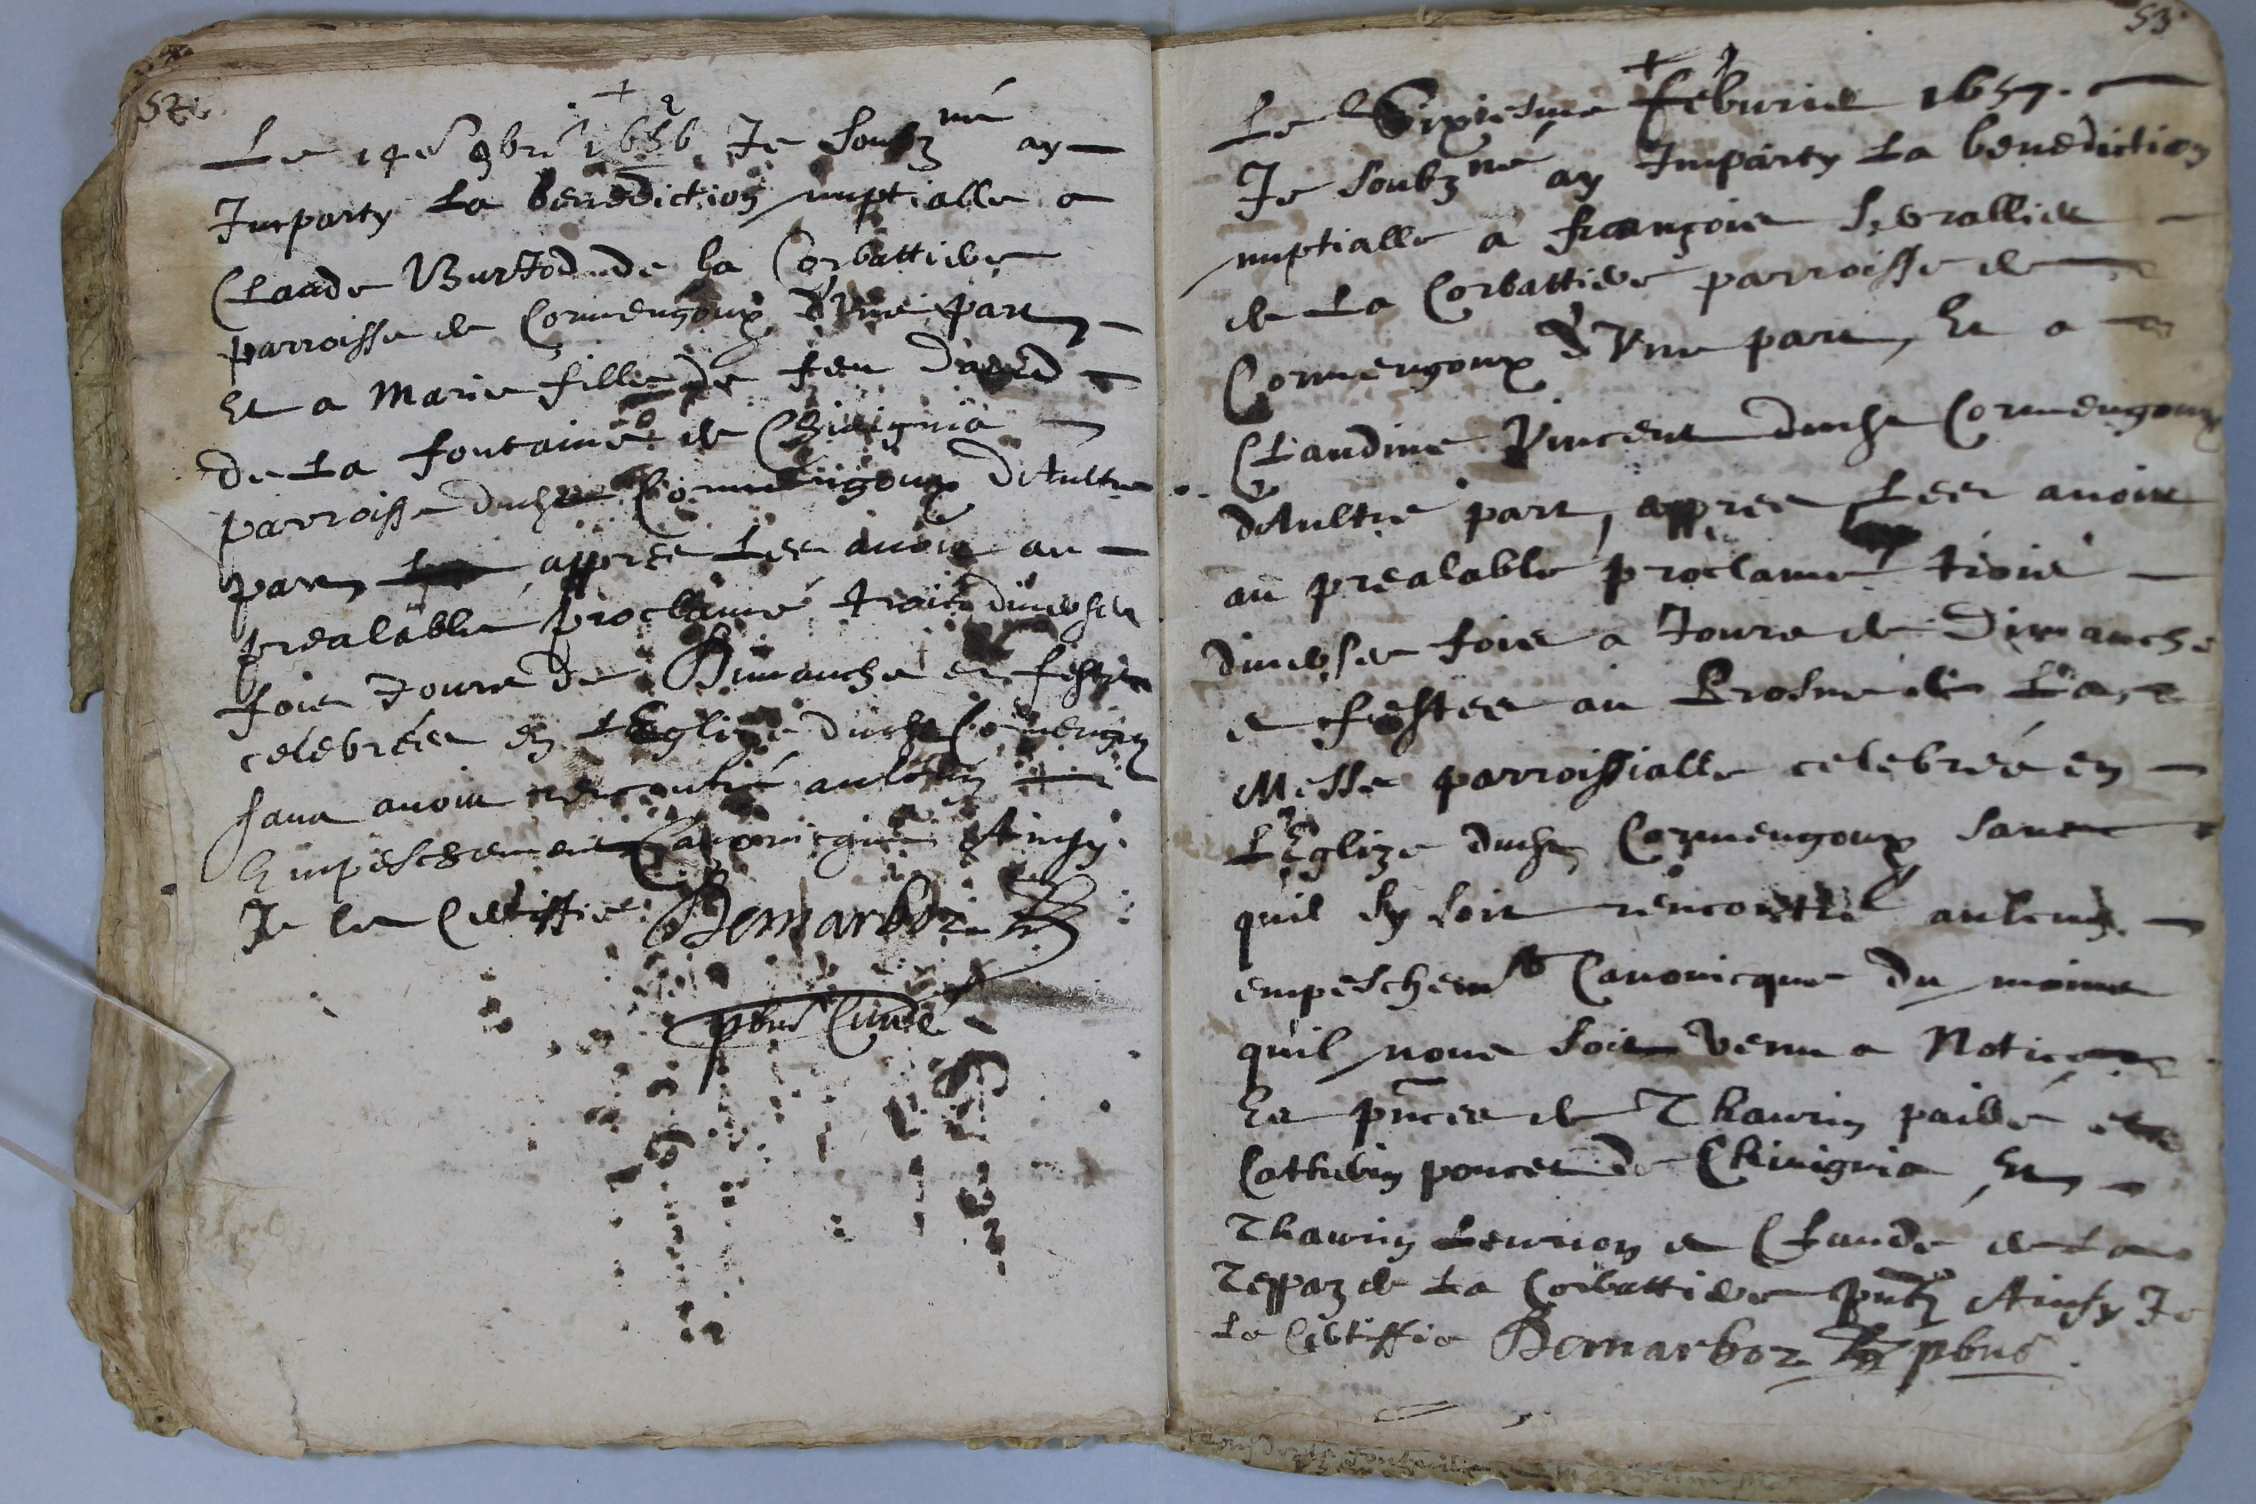 52
+
Le 14e 9bre 1656 Je Soubzné ay
Imparty La benediction nuptialle a
Claude Burtod de la Corbattiere
parroisse de Cormengoux d'Une part
Et a Marie fille de feu David
De La fontaine de Chivignia
parroisse dudit Cormengoux d'Aultre
part appres Les avoir au
prealable proclamé trois diverses
fois Jours de Dimanche et festes
celebrées en L'Eglize dudit Cormengoux
sans avoir rencontré aulcun
Empeschement Canonicque Ainsy
Je le Certiffie Bemarboz
pbre Curé
53
+
Le Sixiesme feburier 1657.
Je Soubzné ay Imparty La benediction
nuptialle a françois Sevrallier
de La Corbattiere parroisse de
Cormengoux d'Une part, Et a
Claudine Vincent dudit Cormengoux
d'Aultre part, appres Les avoir
au prealable proclamé trois
diverses fois a Jours de Dimanche
et festes au Prosne de La
Messe parroissialle celebrée en
L'Eglize dudit Cormengoux sans
quil sy soit rencontré aulcung
empeschemt Canonicque du moins
quil nous soit venu a Notice
Es pnces de Thaurin paillé et
Cathelin poncet de Chivignia Et
Thaurin Leurion et Claude de La
Teppaz de La Corbattiere pntz Ainsy Je
Le Certiffie Bemarboz pbre